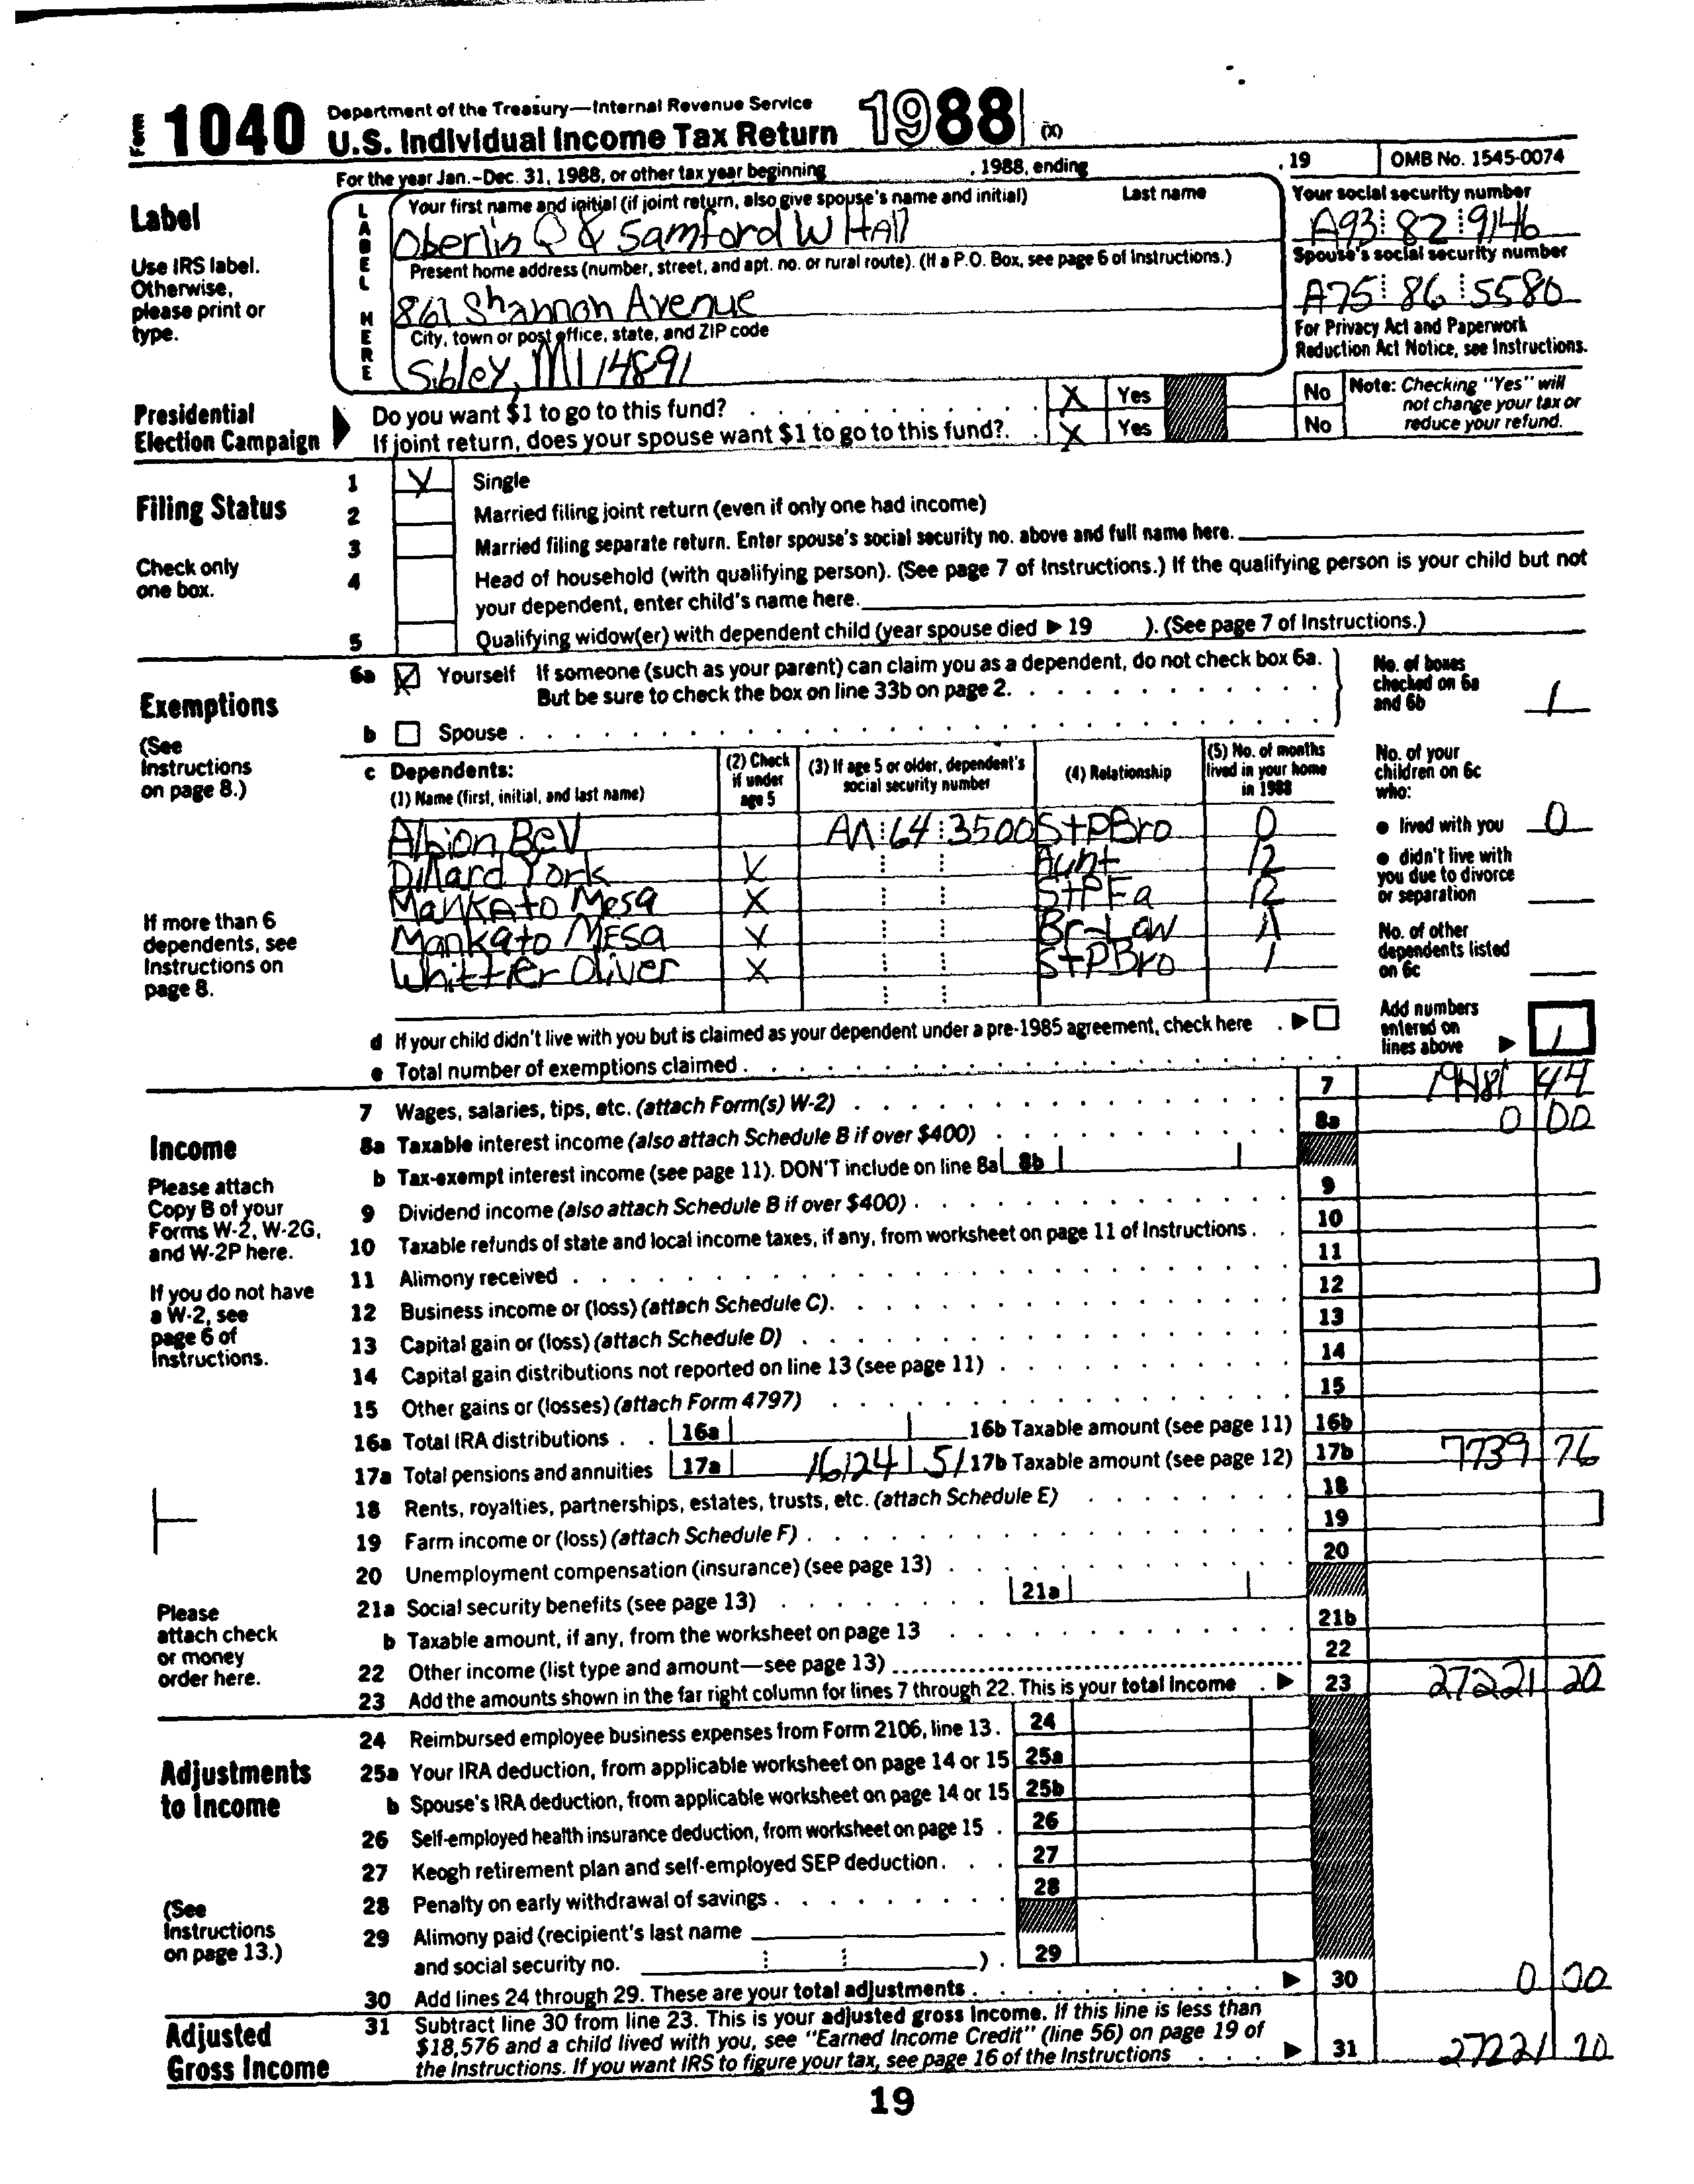 Form 1040 Department of the Treasury—Internal Revenue Service
U.S. Individual Income Tax Return 1988 (X)
For the year Jan.–Dec. 31, 1988, or other tax year beginning , 1988, ending , 19 OMB No. 1545-0074
Label
Use IRS label. Otherwise, please print or type.
LABEL HERE
Your first name and initial (if joint return, also give spouse's name and initial) Last name
Oberlin Q & Samford W Hall
Your social security number
A93 82 9146
Present home address (number, street, and apt. no. or rural route). (If a P.O. Box, see page 6 of Instructions.)
861 Shannon Avenue
Spouse's social security number
A75 86 5580
City, town or post office, state, and ZIP code
Sibley, MI 14891
For Privacy Act and Paperwork Reduction Act Notice, see Instructions.
Presidential Election Campaign
Do you want $1 to go to this fund? X Yes No
If joint return, does your spouse want $1 to go to this fund? X Yes No
Note: Checking "Yes" will not change your tax or reduce your refund.
Filing Status
Check only one box.
1 X Single
2 Married filing joint return (even if only one had income)
3 Married filing separate return. Enter spouse's social security no. above and full name here.
4 Head of household (with qualifying person). (See page 7 of Instructions.) If the qualifying person is your child but not
your dependent, enter child's name here.
5 Qualifying widow(er) with dependent child (year spouse died ▶ 19 ). (See page 7 of Instructions.)
Exemptions
(See Instructions on page 8.)
6a X Yourself If someone (such as your parent) can claim you as a dependent, do not check box 6a.
But be sure to check the box on line 33b on page 2.
b Spouse
No. of boxes checked on 6a and 6b 1
c Dependents:
(1) Name (first, initial, and last name) (2) Check if under age 5 (3) If age 5 or older, dependent's social security number (4) Relationship (5) No. of months lived in your home in 1988
Albion Bev 64 3500 StPBro 0
Dillard York X Aunt 12
Mankato Mesa X StPFa 12
Mankato Mesa X Br-Law
Whittier Oliver X StPBro 1
No. of your children on 6c who:
● lived with you 0
● didn't live with you due to divorce or separation
No. of other dependents listed on 6c
If more than 6 dependents, see Instructions on page 8.
d If your child didn't live with you but is claimed as your dependent under a pre-1985 agreement, check here ▶
e Total number of exemptions claimed
Add numbers entered on lines above ▶ 1
Income
Please attach Copy B of your Forms W-2, W-2G, and W-2P here.
If you do not have a W-2, see page 6 of Instructions.
Please attach check or money order here.
7 Wages, salaries, tips, etc. (attach Form(s) W-2) 7 19481 44
8a Taxable interest income (also attach Schedule B if over $400) 8a 0 00
b Tax-exempt interest income (see page 11). DON'T include on line 8a 8b
9 Dividend income (also attach Schedule B if over $400) 9
10 Taxable refunds of state and local income taxes, if any, from worksheet on page 11 of Instructions 10
11 Alimony received 11
12 Business income or (loss) (attach Schedule C) 12
13 Capital gain or (loss) (attach Schedule D) 13
14 Capital gain distributions not reported on line 13 (see page 11) 14
15 Other gains or (losses) (attach Form 4797) 15
16a Total IRA distributions 16a 16b Taxable amount (see page 11) 16b
17a Total pensions and annuities 17a 16124 51 17b Taxable amount (see page 12) 17b 7739 76
18 Rents, royalties, partnerships, estates, trusts, etc. (attach Schedule E) 18
19 Farm income or (loss) (attach Schedule F) 19
20 Unemployment compensation (insurance) (see page 13) 20
21a Social security benefits (see page 13) 21a
b Taxable amount, if any, from the worksheet on page 13 21b
22 Other income (list type and amount—see page 13) 22
23 Add the amounts shown in the far right column for lines 7 through 22. This is your total income ▶ 23 27221 20
Adjustments to Income
(See Instructions on page 13.)
24 Reimbursed employee business expenses from Form 2106, line 13 24
25a Your IRA deduction, from applicable worksheet on page 14 or 15 25a
b Spouse's IRA deduction, from applicable worksheet on page 14 or 15 25b
26 Self-employed health insurance deduction, from worksheet on page 15 26
27 Keogh retirement plan and self-employed SEP deduction 27
28 Penalty on early withdrawal of savings 28
29 Alimony paid (recipient's last name
and social security no. ) 29
30 Add lines 24 through 29. These are your total adjustments ▶ 30 0 00
Adjusted Gross Income
31 Subtract line 30 from line 23. This is your adjusted gross income. If this line is less than
$18,576 and a child lived with you, see "Earned Income Credit" (line 56) on page 19 of
the Instructions. If you want IRS to figure your tax, see page 16 of the Instructions ▶ 31 27221 20
19